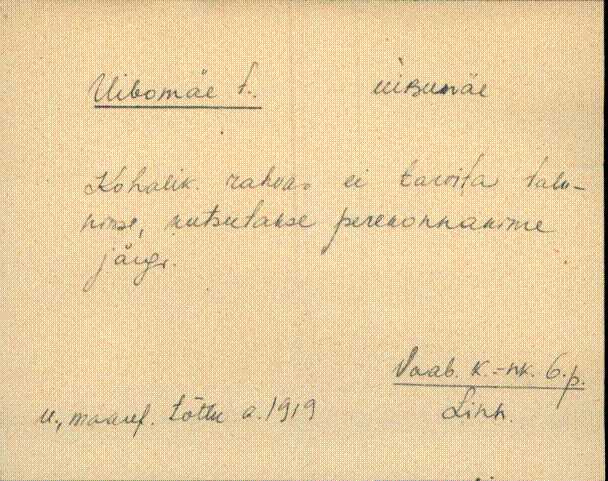 Uibomäe t. ùiʙumäe
Kohalik rahvas ei tarvita talu-
nime, kutsutakse perekonnanime
järgi.
Vaab. k.-nk. 6.p.
u., maaref. tõttu a. 1919 Linn.